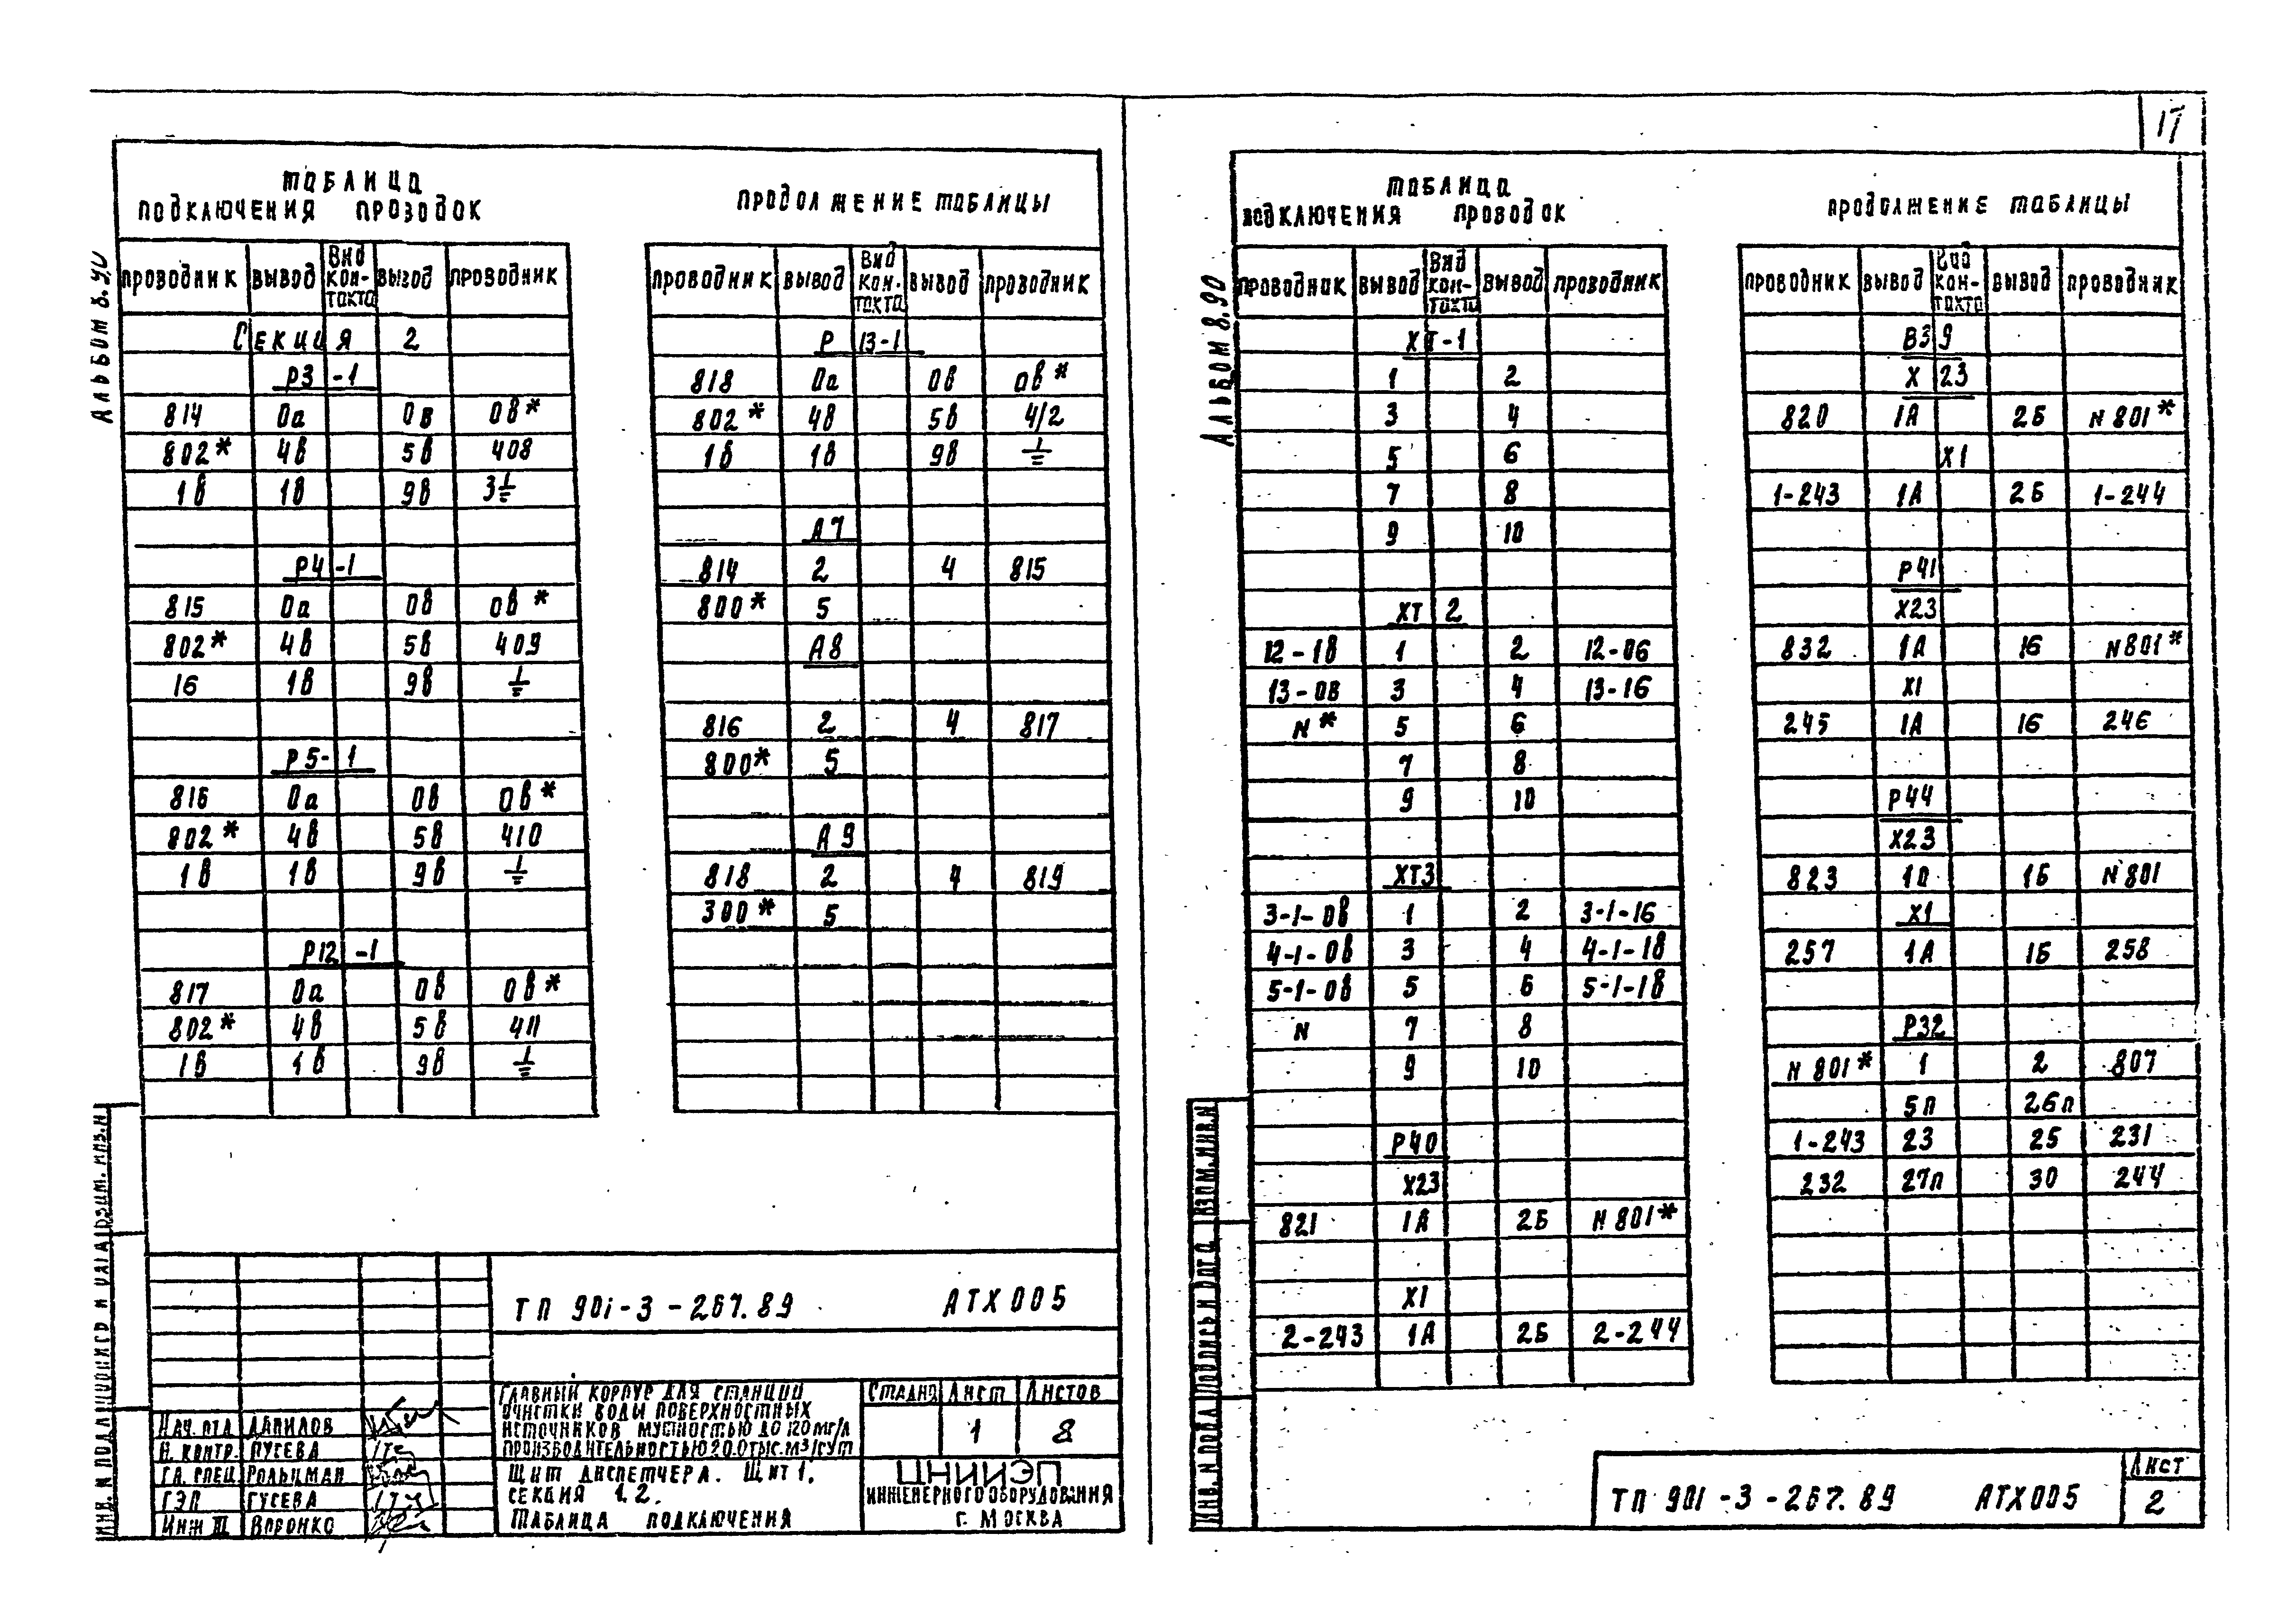 17
Альбом 8.90
Таблица
подключения проводок
проводник вывод Вид кон-такта вывод проводник
Секция 2
Р3-1
814 0а 0в 0в*
802* 4в 5в 408
1в 1в 9в 3⏚
Р4-1
815 0а 0в 0в*
802* 4в 5в 409
1б 1в 9в ⏚
Р5-1
816 0а 0в 0в*
802* 4в 5в 410
1в 1в 9в ⏚
Р12-1
817 0а 0в 0в*
802* 4в 5в 411
1в 1в 9в ⏚
продолжение таблицы
проводник вывод Вид кон-такта вывод проводник
Р13-1
818 0а 0в 0в*
802* 4в 5в 412
1в 1в 9в ⏚
А7
814 2 4 815
800* 5
А8
816 2 4 817
800* 5
А9
818 2 4 819
300* 5
ТП 901-3-267.89 АТХ005
Главный корпус для станции
очистки воды поверхностных
источников мутностью до 120мг/л
производительностью 20.0тыс.м3/сут
Стадия Лист Листов
1 8
Щит диспетчера. Щит 1.
Секция 1.2.
Таблица подключения
ЦНИИЭП
инженерного оборудования
г. Москва
Нач. отд Данилов
Н. контр. Гусева
Гл. спец. Рольцман
ГЭП Гусева
Инж III Воронко
Альбом 8.90
Таблица
подключения проводок
проводник вывод Вид кон-такта вывод проводник
ХТ-1
1 2
3 4
5 6
7 8
9 10
ХТ2
12-1в 1 2 12-06
13-0в 3 4 13-16
N* 5 6
7 8
9 10
ХТ3
3-1-0в 1 2 3-1-16
4-1-0в 3 4 4-1-1в
5-1-0в 5 6 5-1-1в
N 7 8
9 10
Р40
Х23
821 1А 2Б N801*
Х1
2-243 1А 2Б 2-244
продолжение таблицы
проводник вывод Вид кон-такта вывод проводник
В39
Х23
820 1А 2Б N801*
Х1
1-243 1А 2Б 1-244
Р41
Х23
832 1А 1б N801*
Х1
245 1А 1б 246
Р44
Х23
823 1а 1Б N801
Х1
257 1А 1Б 258
Р32
N801* 1 2 807
5п 26п
1-243 23 25 231
232 27п 30 244
Инв. N подл Подпись и дата Взам. инв. N
ТП 901-3-267.89 АТХ005
Лист
2